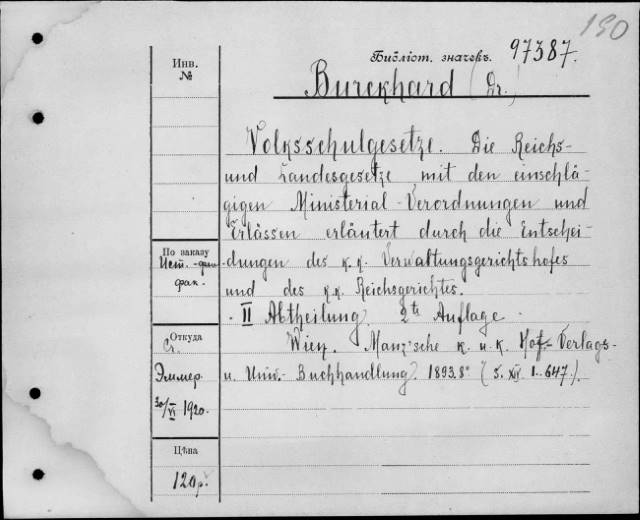 190
Библіот. значекъ. 97387.
Burckhard (Dr.)
Инв.
№
Volksschulgesetze. Die Reichs-
und Landesgesetze mit den einschlä-
gigen Ministerial-Verordnungen und
Erlässen erläutert durch die Entschei-
dungen des k.k. Verwaltungsgerichtshofes
und des k.k. Reichsgerichtes.
II Abtheilung. 2te Auflage.
Wien. Manz'sche k. u. k. Hof-Verlags-
u. Univ.- Buchhandlung. 1893. 8° (S. XIV. 1-647.).
По заказу
Ист.-фил
фак.
Откуда
Ст.
Эммер
30/VI 1920.
Цѣна
120 р.